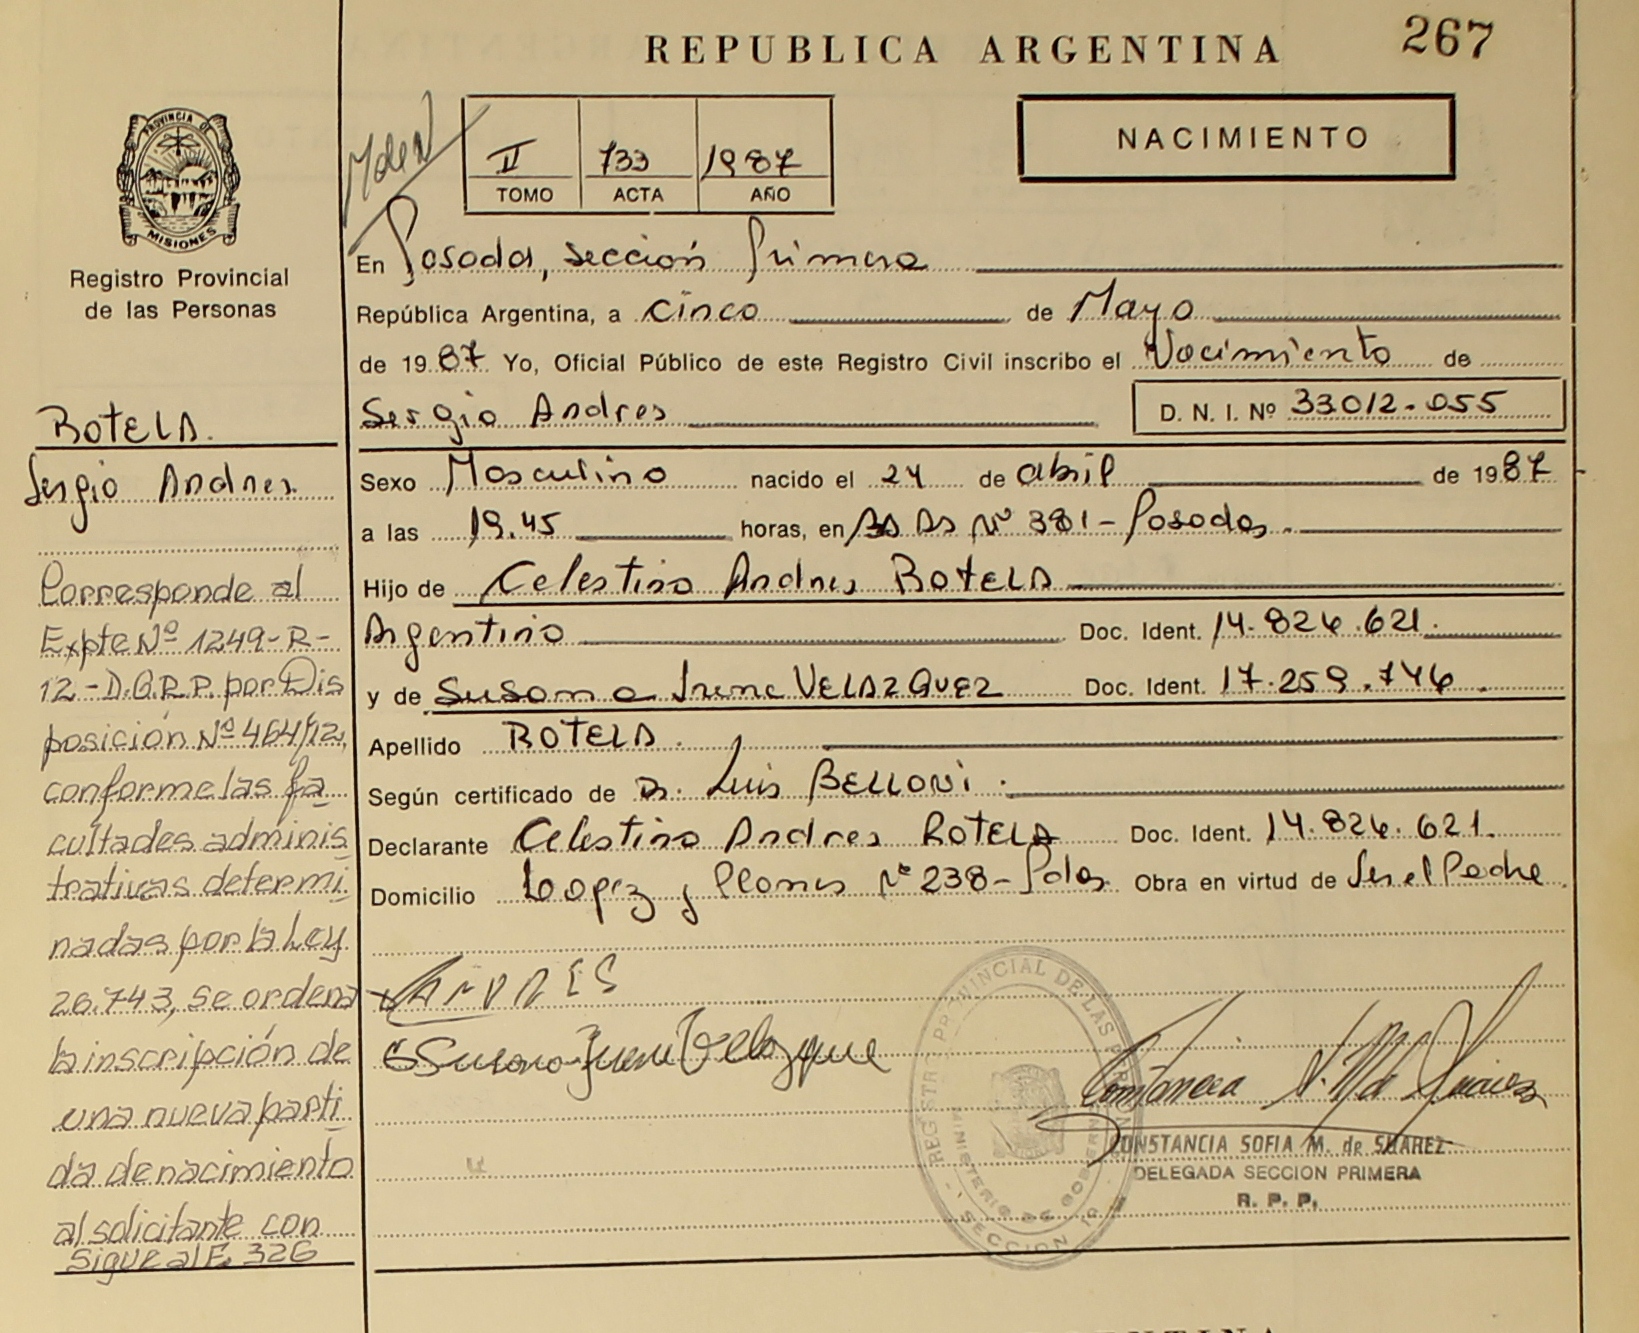 REPUBLICA ARGENTINA
267
PROVINCIA DE
MISIONES
Registro Provincial
de las Personas
II 733 1987
TOMO ACTA AÑO
NACIMIENTO
En Posadas, sección Primera
República Argentina, a cinco de Mayo
de 1987 Yo, Oficial Público de este Registro Civil inscribo el Nacimiento de
Sergio Andres D. N. I. Nº 33012.055
Sexo Masculino nacido el 24 de abril de 1987
a las 19.45 horas, en Bs As Nº 381 - Posadas.
Hijo de Celestino Andres ROTELA
Argentino Doc. Ident. 14.824.621.
y de Susana Irene VELAZQUEZ Doc. Ident. 17.259.746.
Apellido ROTELA.
Según certificado de Dr. Luis BELLONI.
Declarante Celestino Andres ROTELA Doc. Ident. 14.824.621.
Domicilio Lopez y Planes Nº 238 - Pdas. Obra en virtud de Ser el Padre
ROTELA.
Sergio Andres.
Corresponde al
Expte Nº 1249-R-
12-D.G.R.P. por Dis
posición Nº 464/12,
conforme las fa
cultades adminis
trativas determi
nadas por la Ley
26.743, se ordena
la inscripción de
una nueva parti
da de nacimiento
al solicitante con
Sigue al F. 326
ANDRES
Susana Irene Velazquez
CONSTANCIA SOFIA M. de SUAREZ
DELEGADA SECCION PRIMERA
R. P. P.
REGISTRO PROVINCIAL DE LAS PERSONAS
MINISTERIO DE GOBIERNO
SECCION 1a